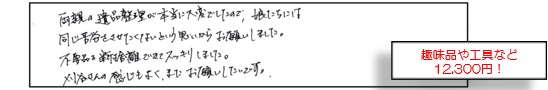 両親の遺品整理が本当に大変でしたので、娘たちには
同じ苦労をさせたくないという思いからお願いしました。
不要品を断捨離できてスッキリしました。
さんの感じもよく、またお願いしたいです。
趣味品や工具など
12,300円！